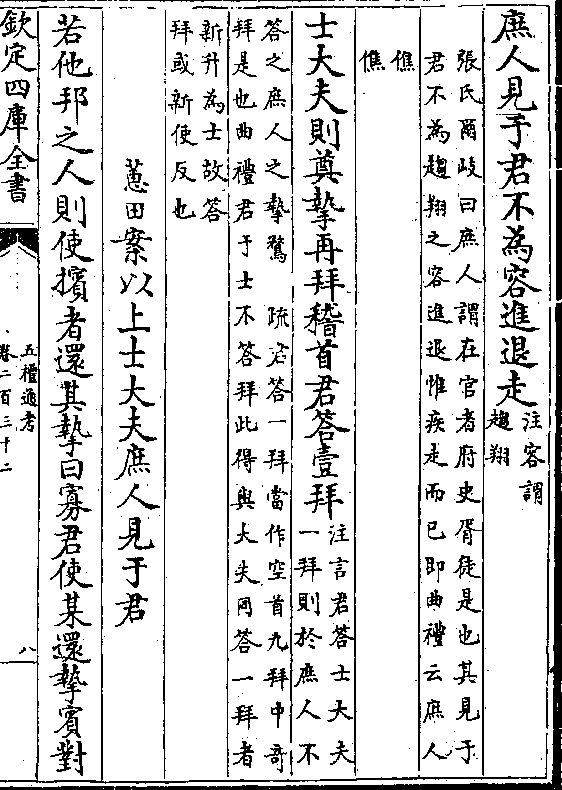 庶人見于君不為容進退走注容謂
趨翔
張氏爾岐曰庶人謂在官者府史胥徒是也其見于
君不為趨翔之容進退惟疾走而已即曲禮云庶人
僬
僬
士大夫則奠摯再拜稽首君答壹拜注言君答士大夫
一拜則於庶人不
答之庶人之摯鶩　疏君答一拜當作空首九拜中奇
拜是也曲禮君于士不答拜此得與大夫同答一拜者
新升為士故答
拜或新使反也
蕙田案以上士大夫庶人見于君
若他邦之人則使擯者還其摯曰寡君使某還摯賓對
欽定四庫全書
五禮通考
卷二百三十二
八